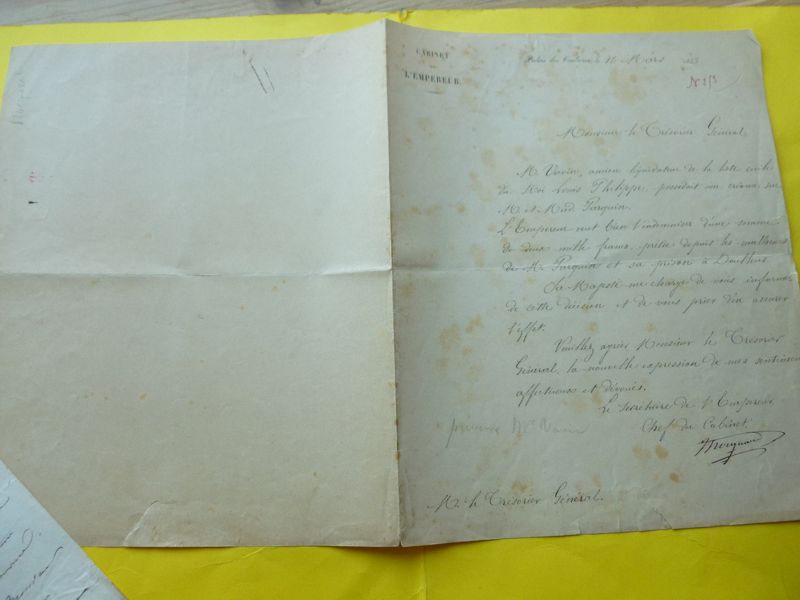 CABINET
DE
L'EMPEREUR.
Palais des Tuileries, le 16 Mars 185
N° 213
Monsieur le Trésorier Général,
M. Vavin, ancien liquidateur de la liste civile
du Roi Louis Philippe, possédait une créance sur
M. et Mad. Parquin.
L'Empereur veut bien l'indemniser d'une somme
de deux mille francs, prêtée depuis les malheurs
de M. Parquin et sa prison à Doullens.
Sa Majesté me charge de vous informer
de cette décision et de vous prier d'en assurer
l'effet.
Veuillez agréer Monsieur le Trésorier
Général, la nouvelle expression de mes sentiments
affectueux et dévoués.
Le Secrétaire de l'Empereur
Chef du Cabinet.
Mocquard
prévenir Mr Vavin
Mr. le Trésorier Général.